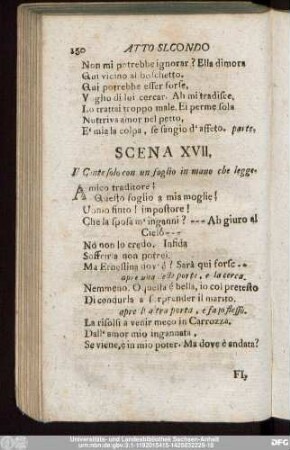 150 ATTO SECONDO
Non mi potrebbe ignorar? Ella dimora
Qui vicino al boschetto.
Qui potrebbe esser forse,
Voglio di lui cercar. Ah mi tradisce,
Lo trattai troppo male. Ei perme sola
Nutrriva amor nel petto,
E' mia la colpa, se fingio d'affeto. parte,
SCENA XVII,
Il Conte solo con un foglio in mano che legge.
Amico traditore!
Questo foglio a mia moglie!
Uomo finto! impostore!
Che la sposa m' inganni? --- Ab giuro al
Cielo---
Nò non lo credo. Infida
Soffrirla non potrei.
Ma Ernestina dov' é? Sarà quì forse --
apre una porta, e la cerca.
Nemmeno. O questa é bella, io coi pretesto
Di condurla a sorprander il marito,
apre l' altra porta, e fa lo stesso.
La risolsi a venir meco in Carrozza,
Dall' amor mio ingannata,
Se viene, è in mio poter. Ma dove é andata?
FI,
Universitäts- und Landesbibliothek Sachsen-Anhalt
urn:nbn:de:gbv:3:1-1192015415-1425832229-15
DFG